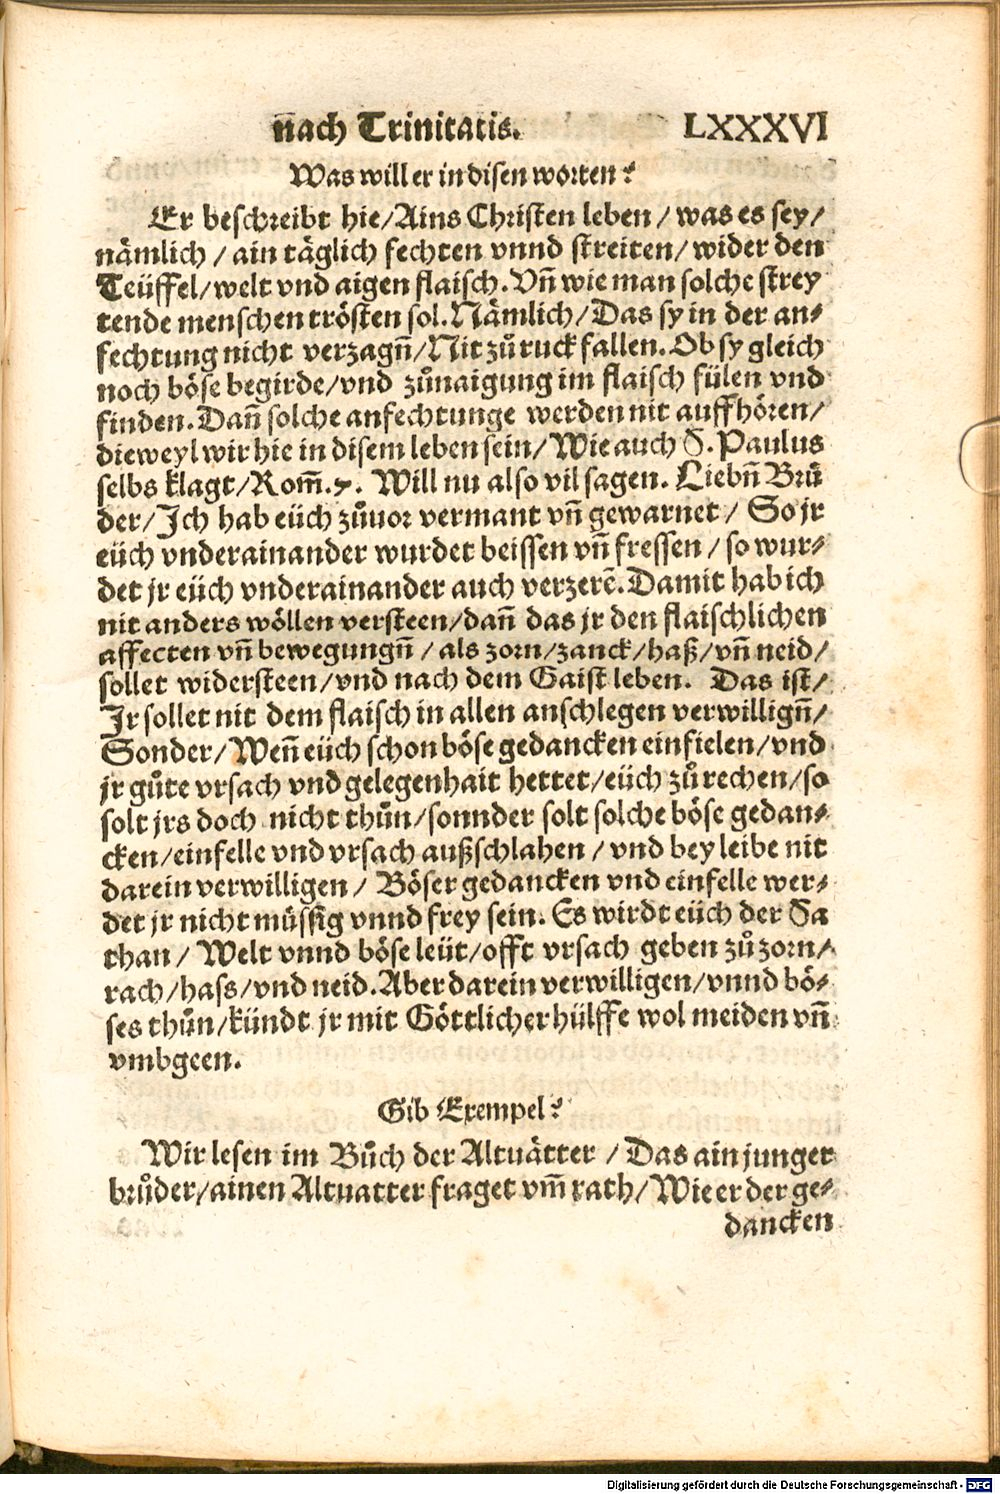 nach Trinitatis. LXXXVI
Was will er in disen worten?
Er beschreibt hie/Ains Christen leben/was es sey/
nämlich/ain täglich fechten vnnd streiten/wider den
Teüffel/welt vnd aigen flaisch. Vñ wie man solche strey
tende menschen trösten sol. Nämlich/Das sy in der an⸗
fechtung nicht verzagñ/Nit zů ruck fallen. Ob sy gleich
noch böse begirde/vnd zůnaigung im flaisch fülen vnd
finden. Dañ solche anfechtunge werden nit auffhören/
dieweyl wir hie in disem leben sein/Wie auch S. Paulus
selbs klagt/Rom̃. 7. Will nu also vil sagen. Liebñ Brů
der/Ich hab eüch zůuor vermant vñ gewarnet/So jr
eüch vnderainander wurdet beissen vñ fressen/so wur⸗
det jr eüch vnderainander auch verzerẽ. Damit hab ich
nit anders wöllen versteen/dañ das jr den flaischlichen
affecten vñ bewegungñ/als zorn/zanck/haß/vñ neid/
sollet widersteen/vnd nach dem Gaist leben. Das ist/
Jr sollet nit dem flaisch in allen anschlegen verwilligñ/
Sonder/Weñ eüch schon böse gedancken einfielen/vnd
jr gůte vrsach vnd gelegenhait hettet/eüch zů rechen/so
solt jrs doch nicht thůn/sonnder solt solche böse gedan⸗
cken/einfelle vnd vrsach außschlahen/vnd bey leibe nit
darein verwilligen/Böser gedancken vnd einfelle wer⸗
det jr nicht müssig vnnd frey sein. Es wirdt eüch der Sa
than/Welt vnnd böse leüt/offt vrsach geben zů zorn/
rach/hass/vnd neid. Aber darein verwilligen/vnnd bö⸗
ses thůn/kündt jr mit Göttlicher hülffe wol meiden vñ
vmbgeen.
Gib Exempel?
Wir lesen im Bůch der Altuätter/Das ain junger
brůder/ainen Altuatter fraget vm̃ rath/Wie er der ge⸗
dancken
Digitalisierung gefördert durch die Deutsche Forschungsgemeinschaft - DFG